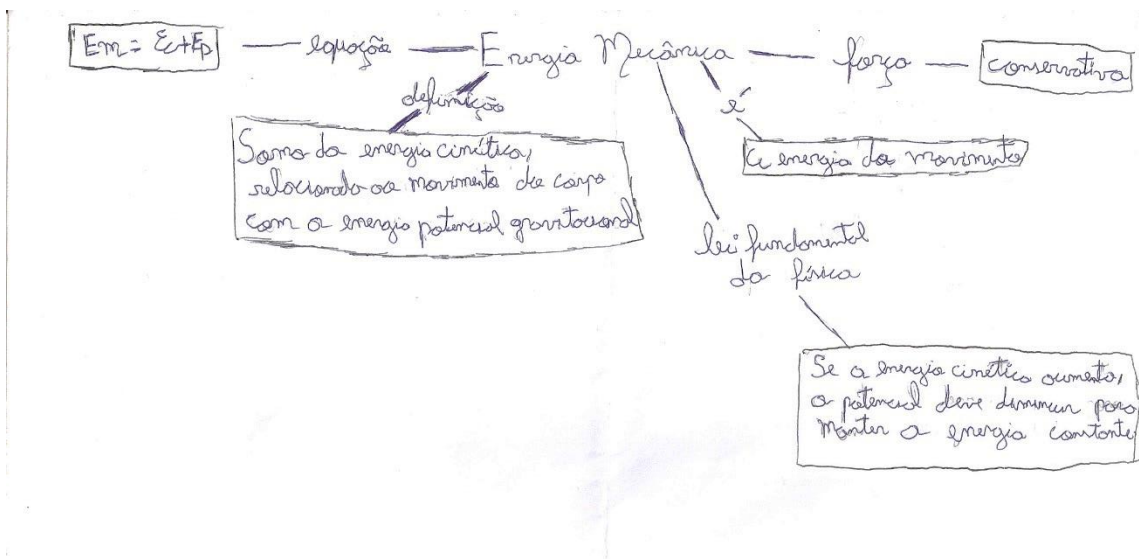 Em = Ec+Ep — equação — Energia Mecânica — força — conservativa
definição
é
Soma da energia cinética,
relacionado ao movimento do corpo
com a energia potencial gravitacional
a energia do movimento
lei fundamental
da física
Se a energia cinética aumenta,
a potencial deve diminuir para
manter a energia constante